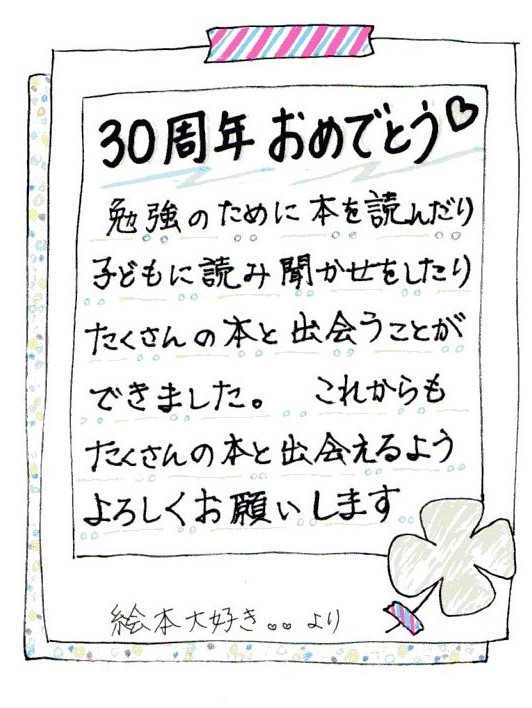 30周年 おめでとう♡
勉強のために本を読んだり
子どもに読み聞かせをしたり
たくさんの本と出会うことが
できました。 これからも
たくさんの本と出会えるよう
よろしくお願いします
絵本大好き。。より